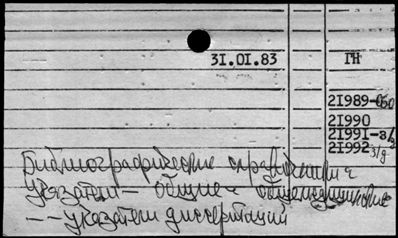 31.01.83 ГН
21989-обо
21990
21991-з/д
21992 з/д
Библиографические справочники
указатели – общие – общемедицинские
– – указатели диссертаций